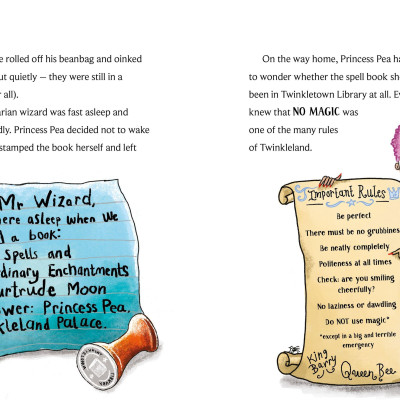 e rolled off his beanbag and oinked
ut quietly – they were still in a
all).
arian wizard was fast asleep and
dly. Princess Pea decided not to wake
stamped the book herself and left
Mr Wizard,
here asleep when we
d a book:
Spells and
rdinary Enchantments
urtrude Moon
ower: Princess Pea,
kleland Palace.
On the way home, Princess Pea ha
to wonder whether the spell book sh
been in Twinkletown Library at all. E
knew that NO MAGIC was
one of the many rules
of Twinkleland.
Important Rules
Be perfect
There must be no grubbiness
Be neatly completely
Politeness at all times
Check: are you smiling
cheerfully?
No laziness or dawdling
Do NOT use magic*
*except in a big and terrible
emergency
King
Barry
Queen Bee